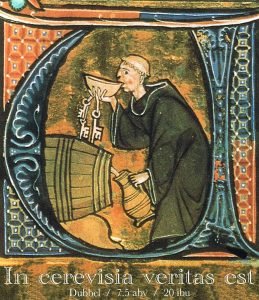 In cerevisia veritas est
Dubbel / 7,5 abv / 20 ibu